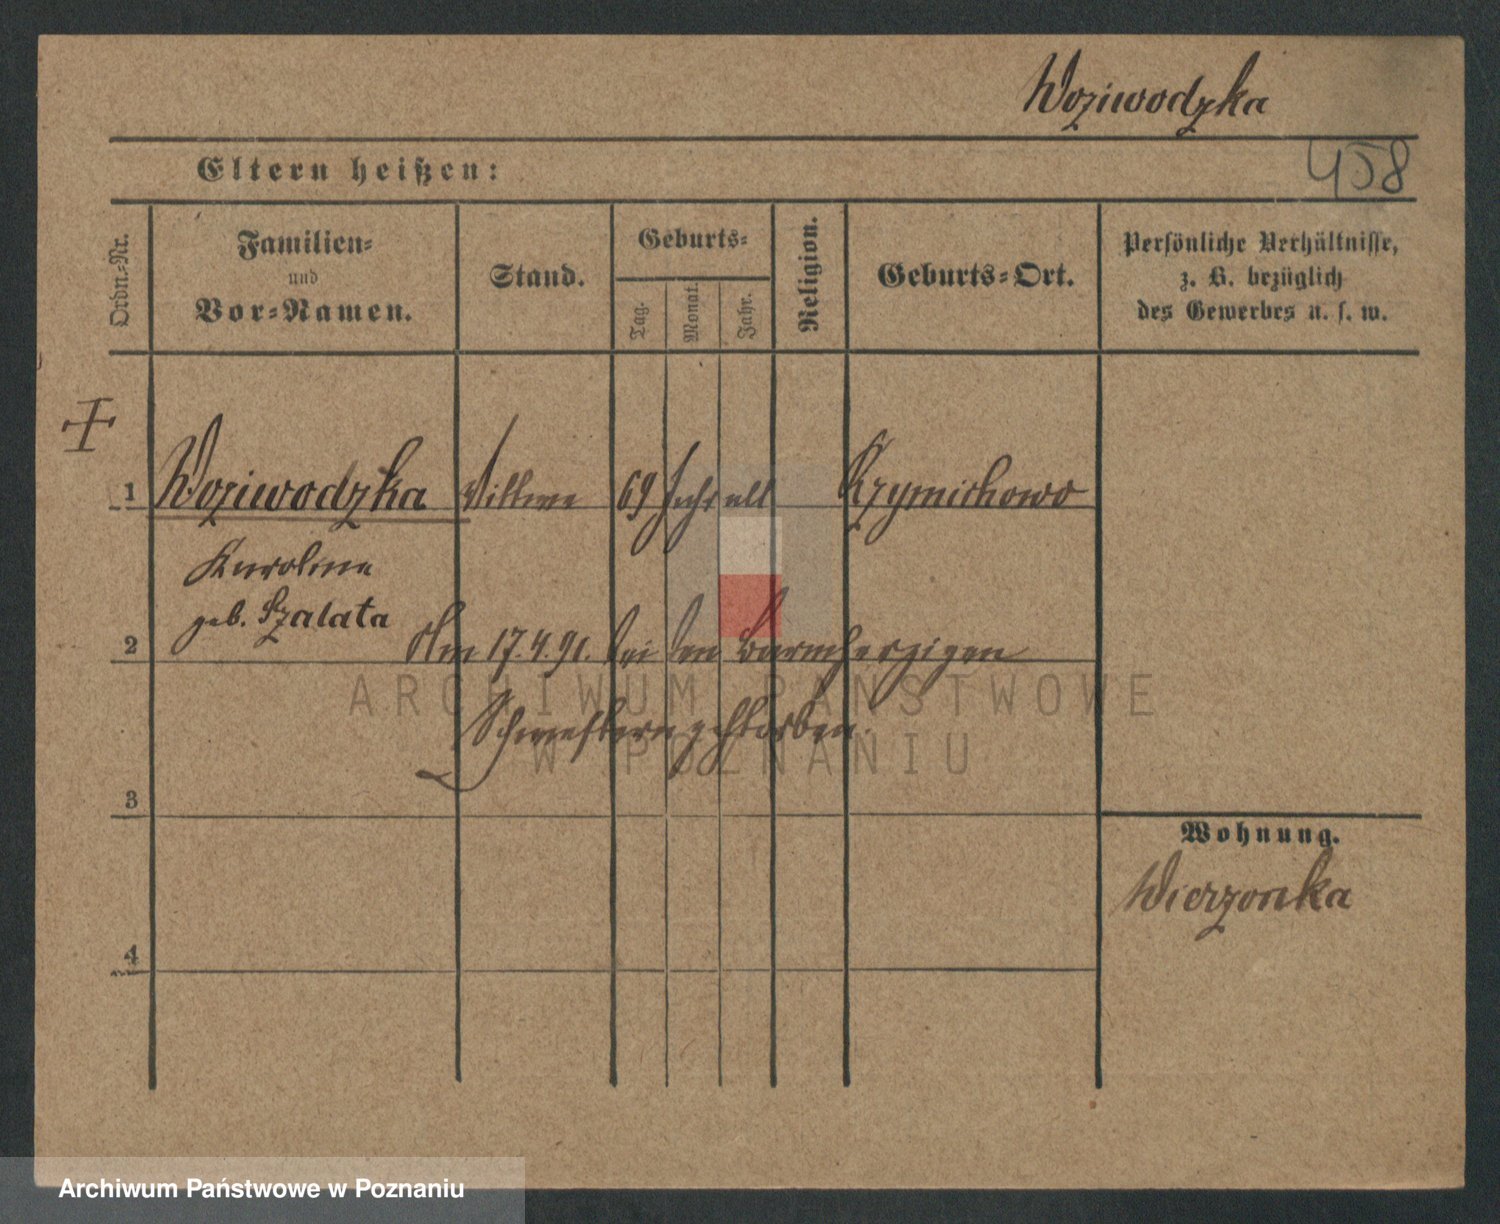 Woziwodzka
458
Eltern heißen:
Ordn.-Nr.
Familien-
und
Vor-Namen.
Stand.
Geburts-
Tag.
Monat.
Jahr.
Religion.
Geburts-Ort.
Persönliche Verhältnisse,
z. B. bezüglich
des Gewerbes u. s. w.
1 Woziwodzka Wittwe 69 Jahr alt
Karoline
geb. Szalata
2 Am 17.4.91. bei den barmherzigen
Schwestern gestorben.
3
Wohnung.
Wierzonka
4
ARCHIWUM PAŃSTWOWE
W POZNANIU
Archiwum Państwowe w Poznaniu